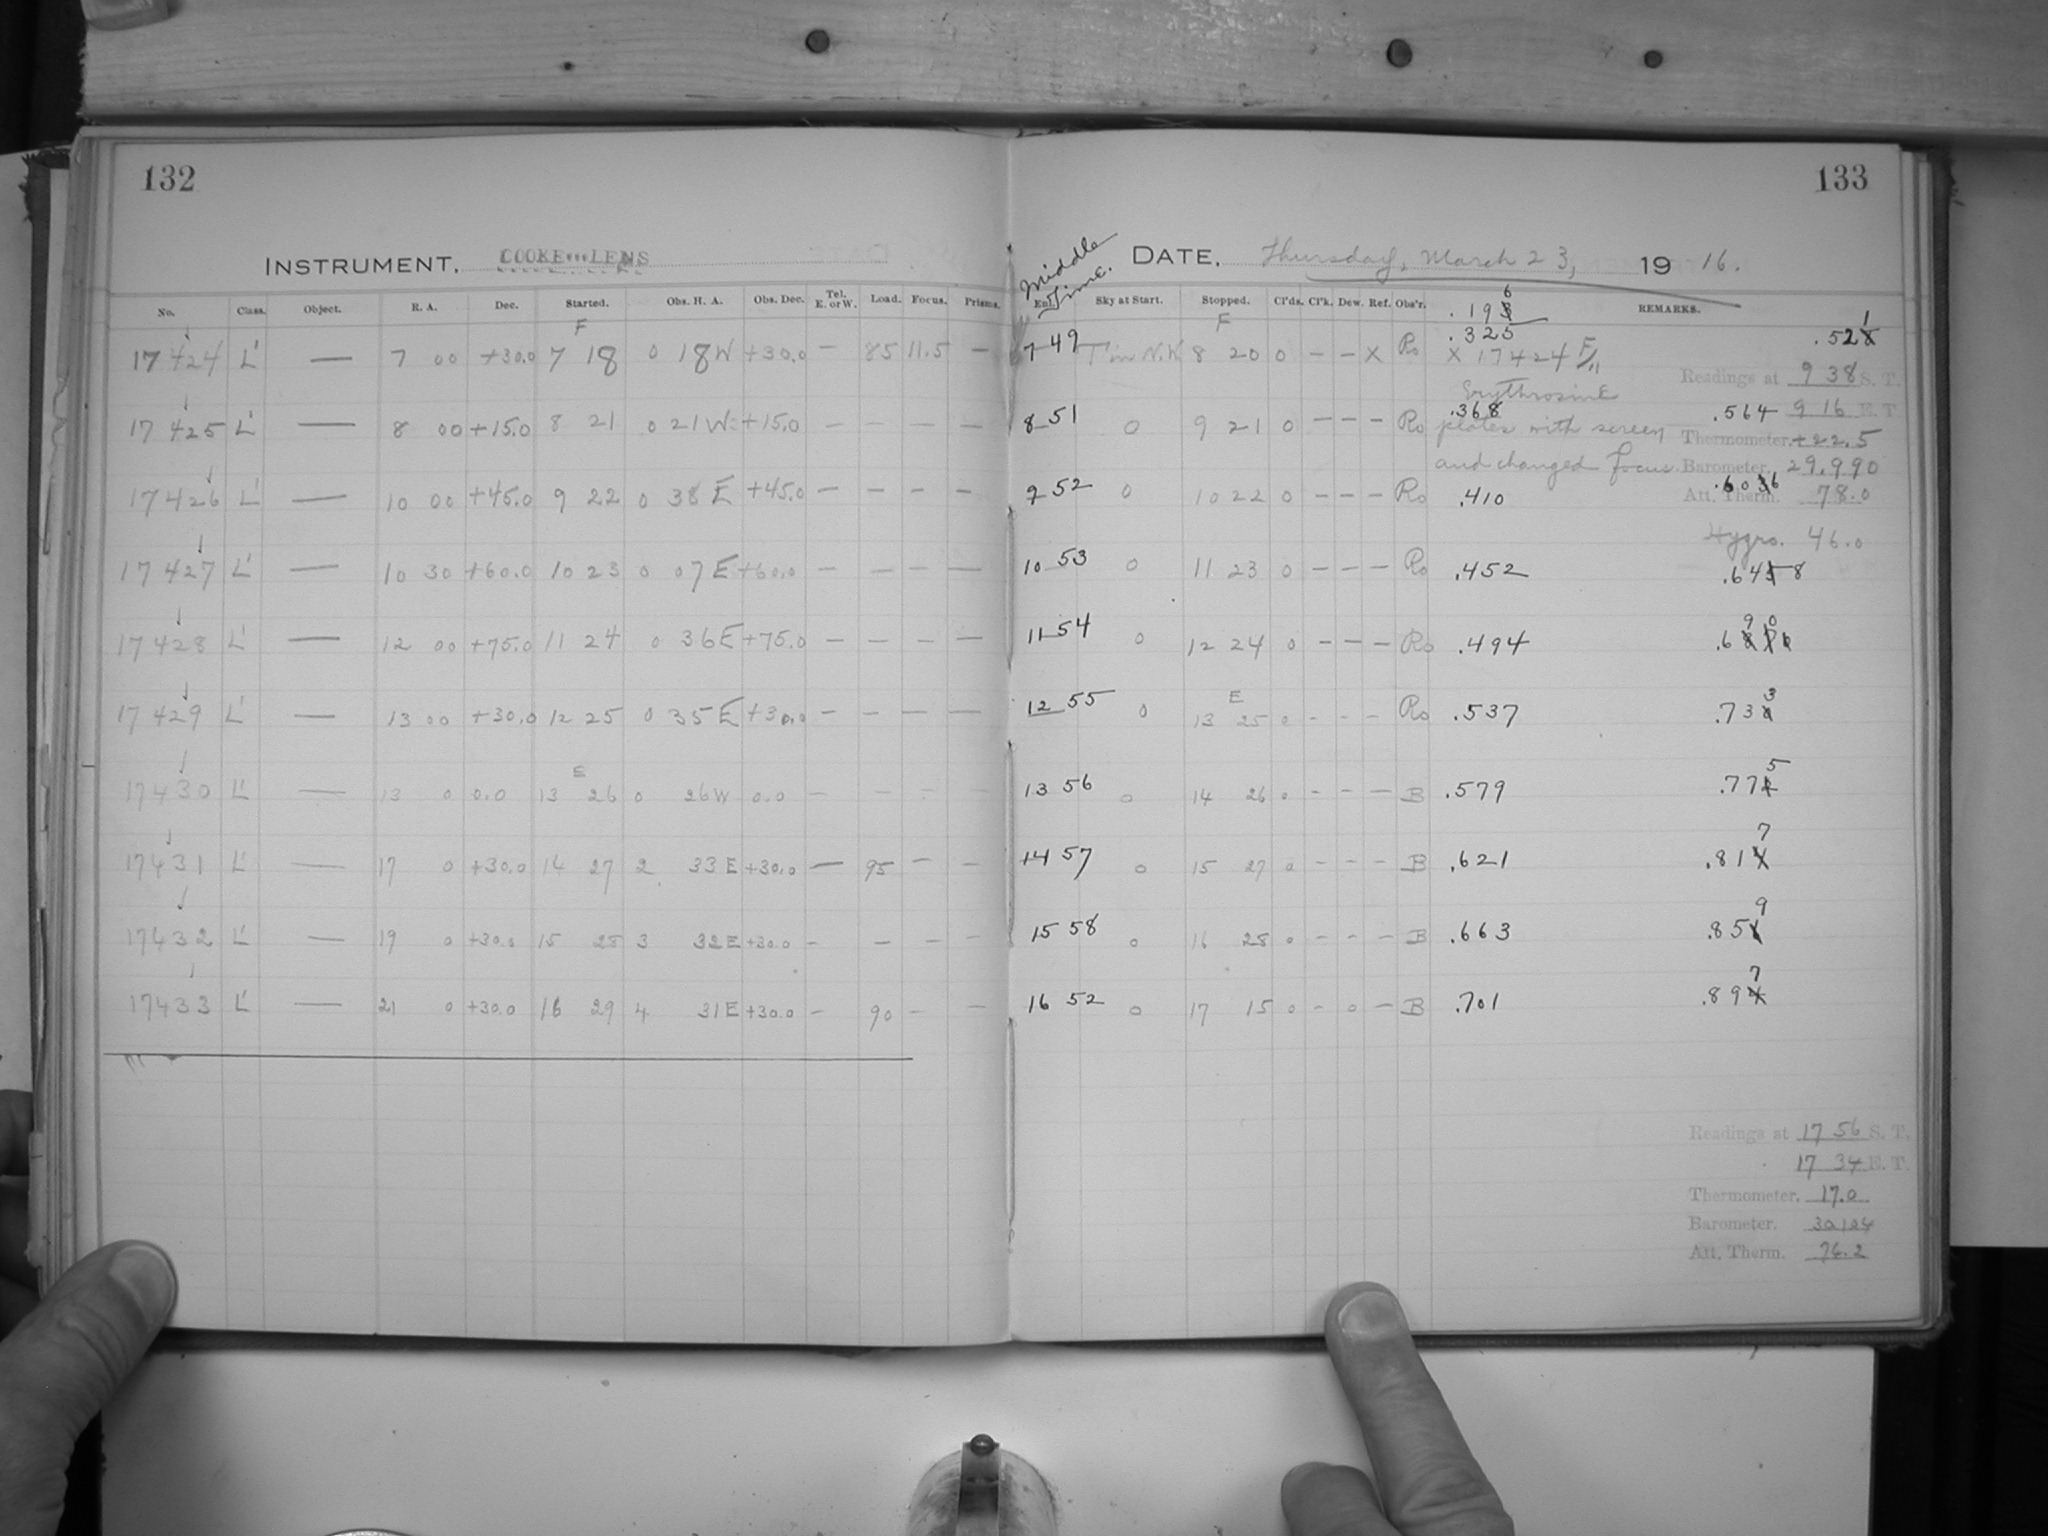 132
INSTRUMENT. COOKE LENS
No. Class. Object. R. A. Dec. Started. Obs. H. A. Obs. Dec. Tel. E. or W. Load. Focus. Prisms.
F
17424 L' — 7 00 +30.0 7 18 0 18W +30.0 — 85 11.5 —
17425 L' — 8 00 +15.0 8 21 0 21W +15.0 — — — —
17426 L' — 10 00 +45.0 9 22 0 38 E +45.0 — — — —
17427 L' — 10 30 +60.0 10 23 0 07 E +60.0 — — — —
17428 L' — 12 00 +75.0 11 24 0 36E +75.0 — — — —
17429 L' — 13 00 +30.0 12 25 0 35E +30.0 — — — —
E
17430 L' — 13 0 0.0 13 26 0 26W 0.0 — — — —
17431 L' — 17 0 +30.0 14 27 2 33E +30.0 — 95 — —
17432 L' — 19 0 +30.0 15 28 3 32E +30.0 — — — —
17433 L' — 21 0 +30.0 16 29 4 31E +30.0 — 90 — —
133
Middle Time.
DATE. Thursday, March 23, 1916.
Sky at Start. Stopped. Cl'ds. Cl'k. Dew. Ref. Obs'r. REMARKS.
.196
F
.325 .521
7 49 T in N.W. 8 20 0 — — X Ro X 17424 F
Readings at 9 38 S. T.
Erythrosine
8 51 0 9 21 0 — — — Ro .368 .564 9 16 E. T.
plates with screen Thermometer. +22.5
and changed focus. Barometer. 29.990
9 52 0 10 22 0 — — — Ro .410 .606 Att. Therm. 78.0
Hygro. 46.0
10 53 0 11 23 0 — — — Ro .452 .648
11 54 0 12 24 0 — — — Ro .494 .690
E
12 55 0 13 25 0 - - - Ro .537 .733
13 56 0 14 26 0 - - — B .579 .775
14 57 0 15 27 0 - - - B .621 .817
15 58 0 16 28 0 - - - B .663 .859
16 52 0 17 15 0 - 0 - B .701 .897
Readings at 17 56 S. T.
17 34 E. T.
Thermometer. 17.0
Barometer. 30.124
Att. Therm. 76.2